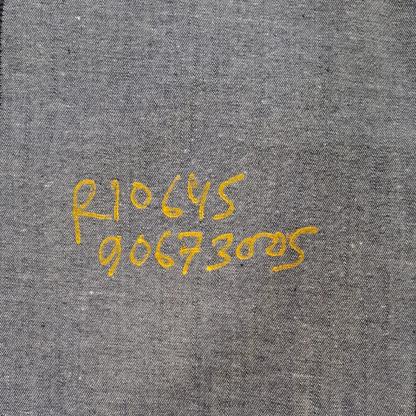 R10645
90673005